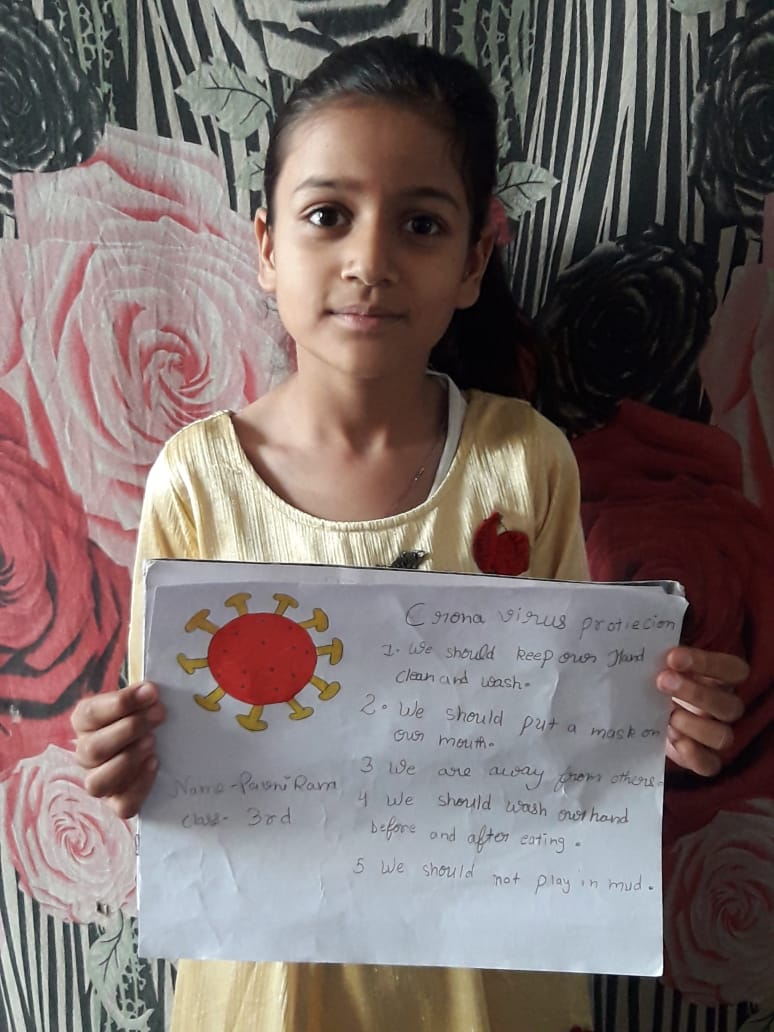 Crona virus protiecion
1. We should keep our Hand
clean and wash.
2. We should put a mask on
our mouth.
3 We are away from others.
4 We should wash our hand
before and after eating.
5 We should not play in mud.
Name - Pavni Ram
class - 3rd